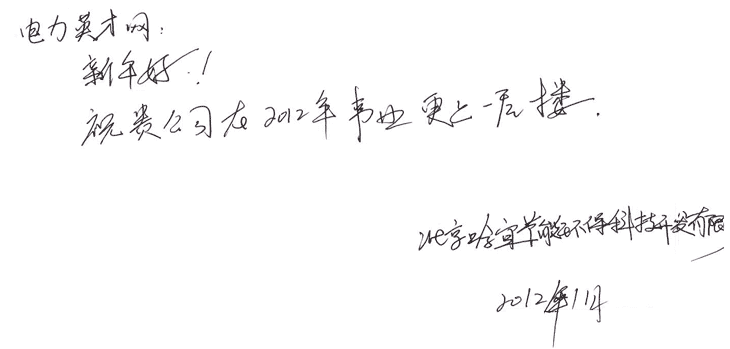 电力英才网:
新年好!
祝贵公司在2012年事业更上一层楼.
北京哈宜节能环保科技开发有限
2012年11月